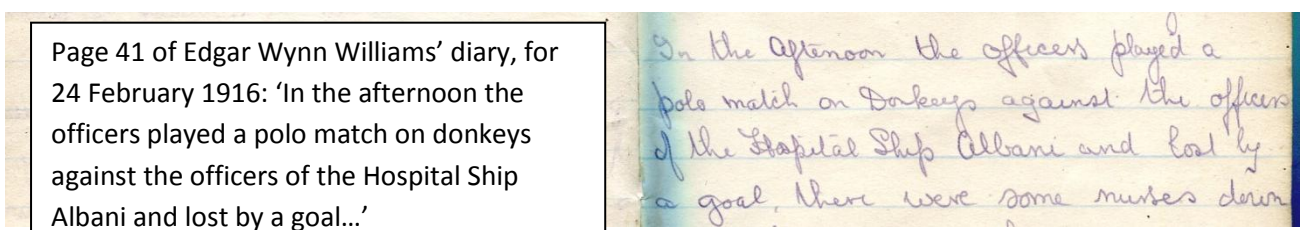 Page 41 of Edgar Wynn Williams’ diary, for
24 February 1916: ‘In the afternoon the
officers played a polo match on donkeys
against the officers of the Hospital Ship
Albani and lost by a goal…’
In the afternoon the officers played a
polo match on Donkeys against the officers
of the Hospital Ship Albani and lost by
a goal, there were some nurses down